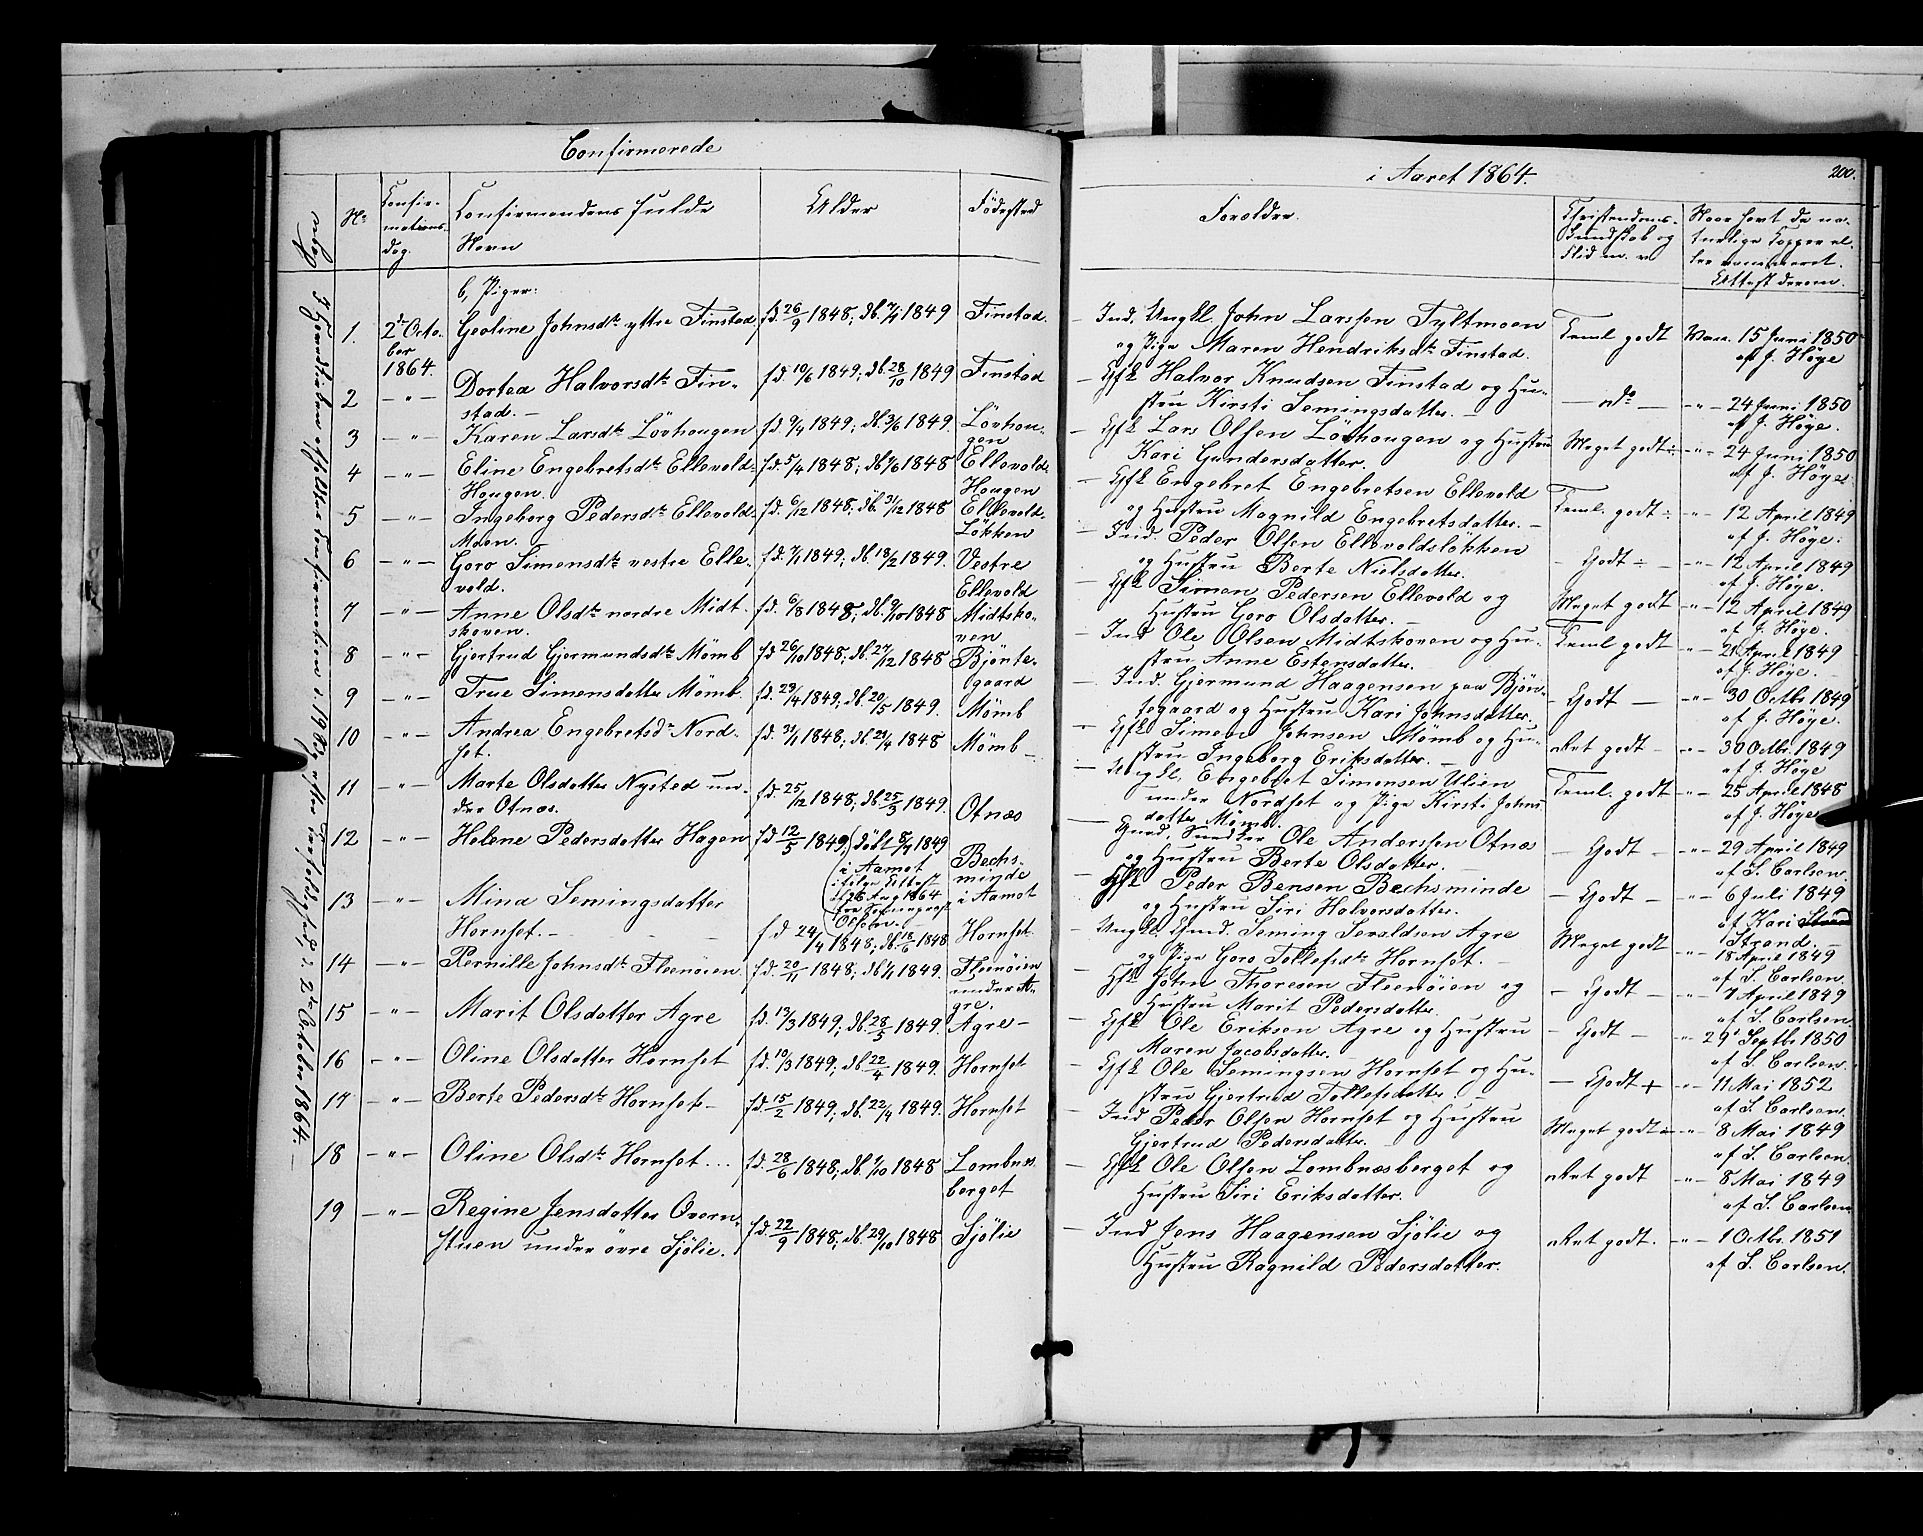 Confirmerede
i Aaret 1864.
200.
No
Confir-
mations
dag.
Confirmandens fulde
Navn
Alder
Fødested
Forældre.
Christendoms-
Kundskab og
Flid m. v
Naar havt de na-
turlige Kopper el-
ler vaccineret.
Attest derom.
b, Piger:
1.
2de Octo-
ber
1864.
Geoline Johnsdtr yttre Finstad
fd. 26/9 1848; db. 7/4 1849
Finstad.
Ind. Ungkl. John Larssen Tyltmoen
og Pige Maren Hendriksdtr Finstad.
Teml godt
Vacc. 15 Juni 1850
af J. Høye
2
— " —
Dortea Halvorsdtr Fin-
stad. —
fd. 10/6 1849; db. 28/10 1849
Finstad
— Gfk Halvor Knudsen Finstad og Hu-
stru Kirsti Semingsdatter. —
— do —
— " — 24 Juni 1850
af J. Høye.
3
— " —
Karen Larsdtr Løvhougen
fd. 9/4 1849; db. 3/6 1849.
Løvhou-
gen
— Gfk Lars Olsen Løvhougen og Hustru
Kari Gundersdatter.
Meget godt
— " — 24 Juni 1850
af J. Høye.
4
— " —
Eline Engebretsdtr Ellevold-
Hougen.
Ellevold-
Hougen
— Gfk Engebret Engebretsen Ellevold
og Hustru Magnild Engebretsdatter. —
Teml. godt
— " — 12 April 1849
af J. Høye.
5
— " —
Ingeborg Pedersdtr Ellevold-
Moen.
fd. 6/12 1848; db. 31/12 1848
Ellevold-
Løkken
— Ind. Peder Olsen Ellevoldsløkken
og Hustru Berte Nielsdatter.
— Godt ÷
— " — 12 April 1849
af J. Høye.
6
— " —
Goro Simensdtr vestre Elle-
vold.
fd. 7/1 1849; db. 18/2 1849.
Vestre
Ellevold
— Gfk Simen Pedersen Ellevold og
Hustru Goro Olsdatter. —
Meget godt
— " — 12 April 1849
af J. Høye.
7
— " —
Anne Olsdtr nordre Midt-
skoven.
fd. 6/8 1848; db. 9/10 1848
Midtsko-
ven
— Ind Ole Olsen Midtskoven og Hu-
stru Anne Estensdatter.
Teml godt
— " — 21 April 1849
af J. Høye.
8
— " —
Gjertrud Gjermundsdtr Mømb
fd. 26/10 1848; db. 27/12 1848
Bjønte-
gaard
— Ind. Gjermund Haagensen paa Bjøn-
tegaard og Hustru Kari Johnsdatter.
— Godt —
— " — 30 Octbr 1849
af J. Høye.
9
— " —
Simensdatter Mømb.
fd. 23/4 1849; db. 20/5 1849.
Mømb
— Gfk Simen Johnsen Mømb og Hu-
stru Ingeborg Eriksdatter. —
Ret godt —
— " — 30 Octbr. 1849
af J. Høye
10
— " —
Andrea Engebretsdtr Nord-
set.
fd. 31/1 1848; db. 24/4 1848
Mømb —
— Ungkl. Engebret Simensen Ulien
under Nordset og Pige Kirsti Johns
datter Mømb.
Teml. godt
— " — 25 April 1848
af J. Høye
11
— " —
Marte Olsdatter Nysted un-
der Otnæs.
fd. 25/12 1848; db. 25/3 1849.
Otnæs
— Ole Anderssen Otnæs
og Hustru Berte Olsdatter.
— Godt —
— " — 29 April 1849
af S. Carlsen.
12
— " —
Helene Pedersdatter Hagen
fd 12/5 1849; (døbt 8/7 1849
i Aamot
ifølge Attest
af 26 Aug 1864
fra Sognepræst
Olsen.
Bechs-
minde
i Aamot
— Gfk Peder Bensen Bechsminde
og Hustru Siri Halvorsdatter.
— Godt —
— " — 6 Juli 1849
af Kari
Strand. —
13
— " —
Mina Semingsdatter
Hornset. —
fd 24/4 1848; db. 18/6 1848
Hornset
— Ungkl. Gmd. Seming Iveraldsen Agre
og Pige Goro Tollefsdtr Hornset. —
Meget godt
— " — 18 April 1849
af S. Carlsen
14
— " —
Pernille Johnsdtr Fleenøien
fd. 20/11 1848; db. 1/1 1849.
Fleenøien
under A-
gre.
— Gfk John Thoresen Fleenøien og
Hustru Marit Pedersdatter.
— Godt —
— " — 7 April 1849
af S. Carlsen.
15
— " —
Marit Olsdatter Agre
fd. 17/3 1849; db. 28/5 1849.
Agre —
— Gfk Ole Eriksen Agre og Hustru
Maren Jacobsdatter. —
— Godt —
— " — 29 Septbr 1850
af S. Carlsen
16
— " —
Oline Olsdatter Hornset
fd. 10/3 1849; db. 22/4 1849.
Hornset
— Gfk Ole Semingsen Hornset og Hu-
stru Gjertrud Tollefsdatter.
— Godt +
— " — 11 Mai 1852
af S. Carlsen.
17
— " —
Berte Pedersdtr Hornset —
fd. 15/2 1849; db. 22/4 1849.
Hornset
— Ind Peder Olsen Hornset og Hustru
Gjertrud Pedersdatter.
Meget godt
— " — 8 Mai 1849
af S. Carlsen.
18
— " —
Oline Olsdtr Hornset ...
fd. 28/6 1848; db. 1/10 1848
Lombnæs-
berget
— Gfk Ole Olsen Lombnæsberget og
Hustru Siri Eriksdatter.
Ret godt
— " — 8 Mai 1849
af S. Carlsen
19
— " —
Regine Jensdatter Overn-
stuen under øvre Sjølie.
fd. 22/9 1848; db. 29/10 1848
Sjølie
— Ind Jens Haagensen Sjølie og
Hustru Ragnild Pedersdatter.
Ret godt.
— " — 1 Octbr. 1851
af S. Carlsen.
2de October 1864. —